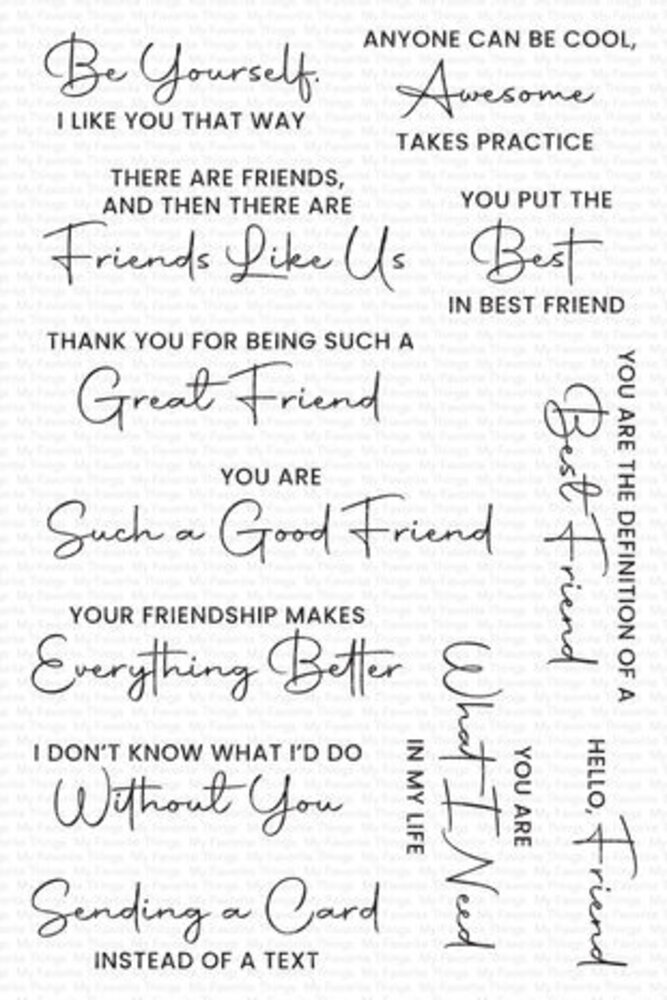 Be Yourself.
I LIKE YOU THAT WAY
ANYONE CAN BE COOL,
Awesome
TAKES PRACTICE
THERE ARE FRIENDS,
AND THEN THERE ARE
Friends Like Us
YOU PUT THE
Best
IN BEST FRIEND
THANK YOU FOR BEING SUCH A
Great Friend
YOU ARE THE DEFINITION OF A
Best Friend
YOU ARE
Such a Good Friend
YOUR FRIENDSHIP MAKES
Everything Better
YOU ARE
What I Need
IN MY LIFE
HELLO, Friend
I DON'T KNOW WHAT I'D DO
Without You
Sending a Card
INSTEAD OF A TEXT